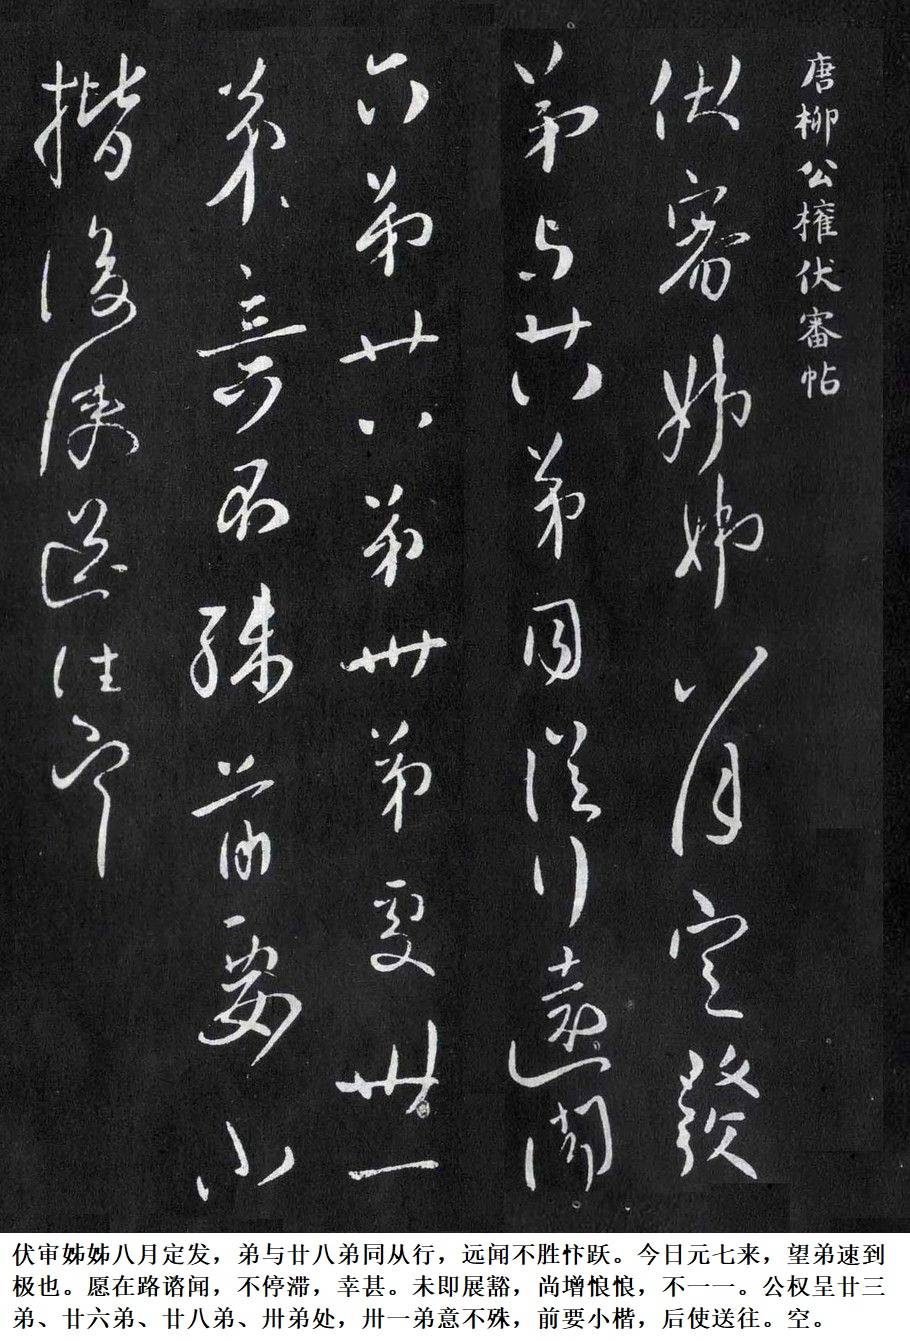 唐柳公權伏審帖
伏審姊姊八月定發
弟与廿八弟同從行遠聞
六弟廿八弟卅弟處卅一
弟意不殊前要小
楷後使送往空
伏审姊姊八月定发，弟与廿八弟同从行，远闻不胜忭跃。今日元七来，望弟速到
极也。愿在路谘闻，不停滞，幸甚。未即展豁，尚增恨恨，不一一。公权呈廿三
弟、廿六弟、廿八弟、卅弟处，卅一弟意不殊，前要小楷，后使送往。空。